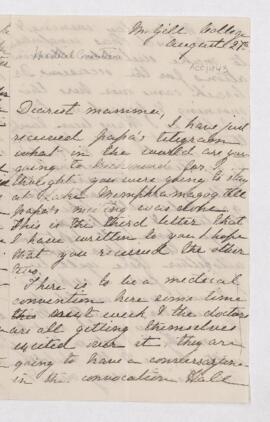 McGill College
August 27th
Medical Convention
Dearest mamma,
I have just
received papa's telegram
what in the world are you
going to for. I
thought you were going to stay
at Lake Memphramagog till
papa's meeting was done
This is the third letter that
I have written to you I hope
that you received the other
two.
There is to be a medical
convention here some time
this week & the doctors
are all getting themselves
excited over it. they are
going to have a conversazione
in the convocation Hall